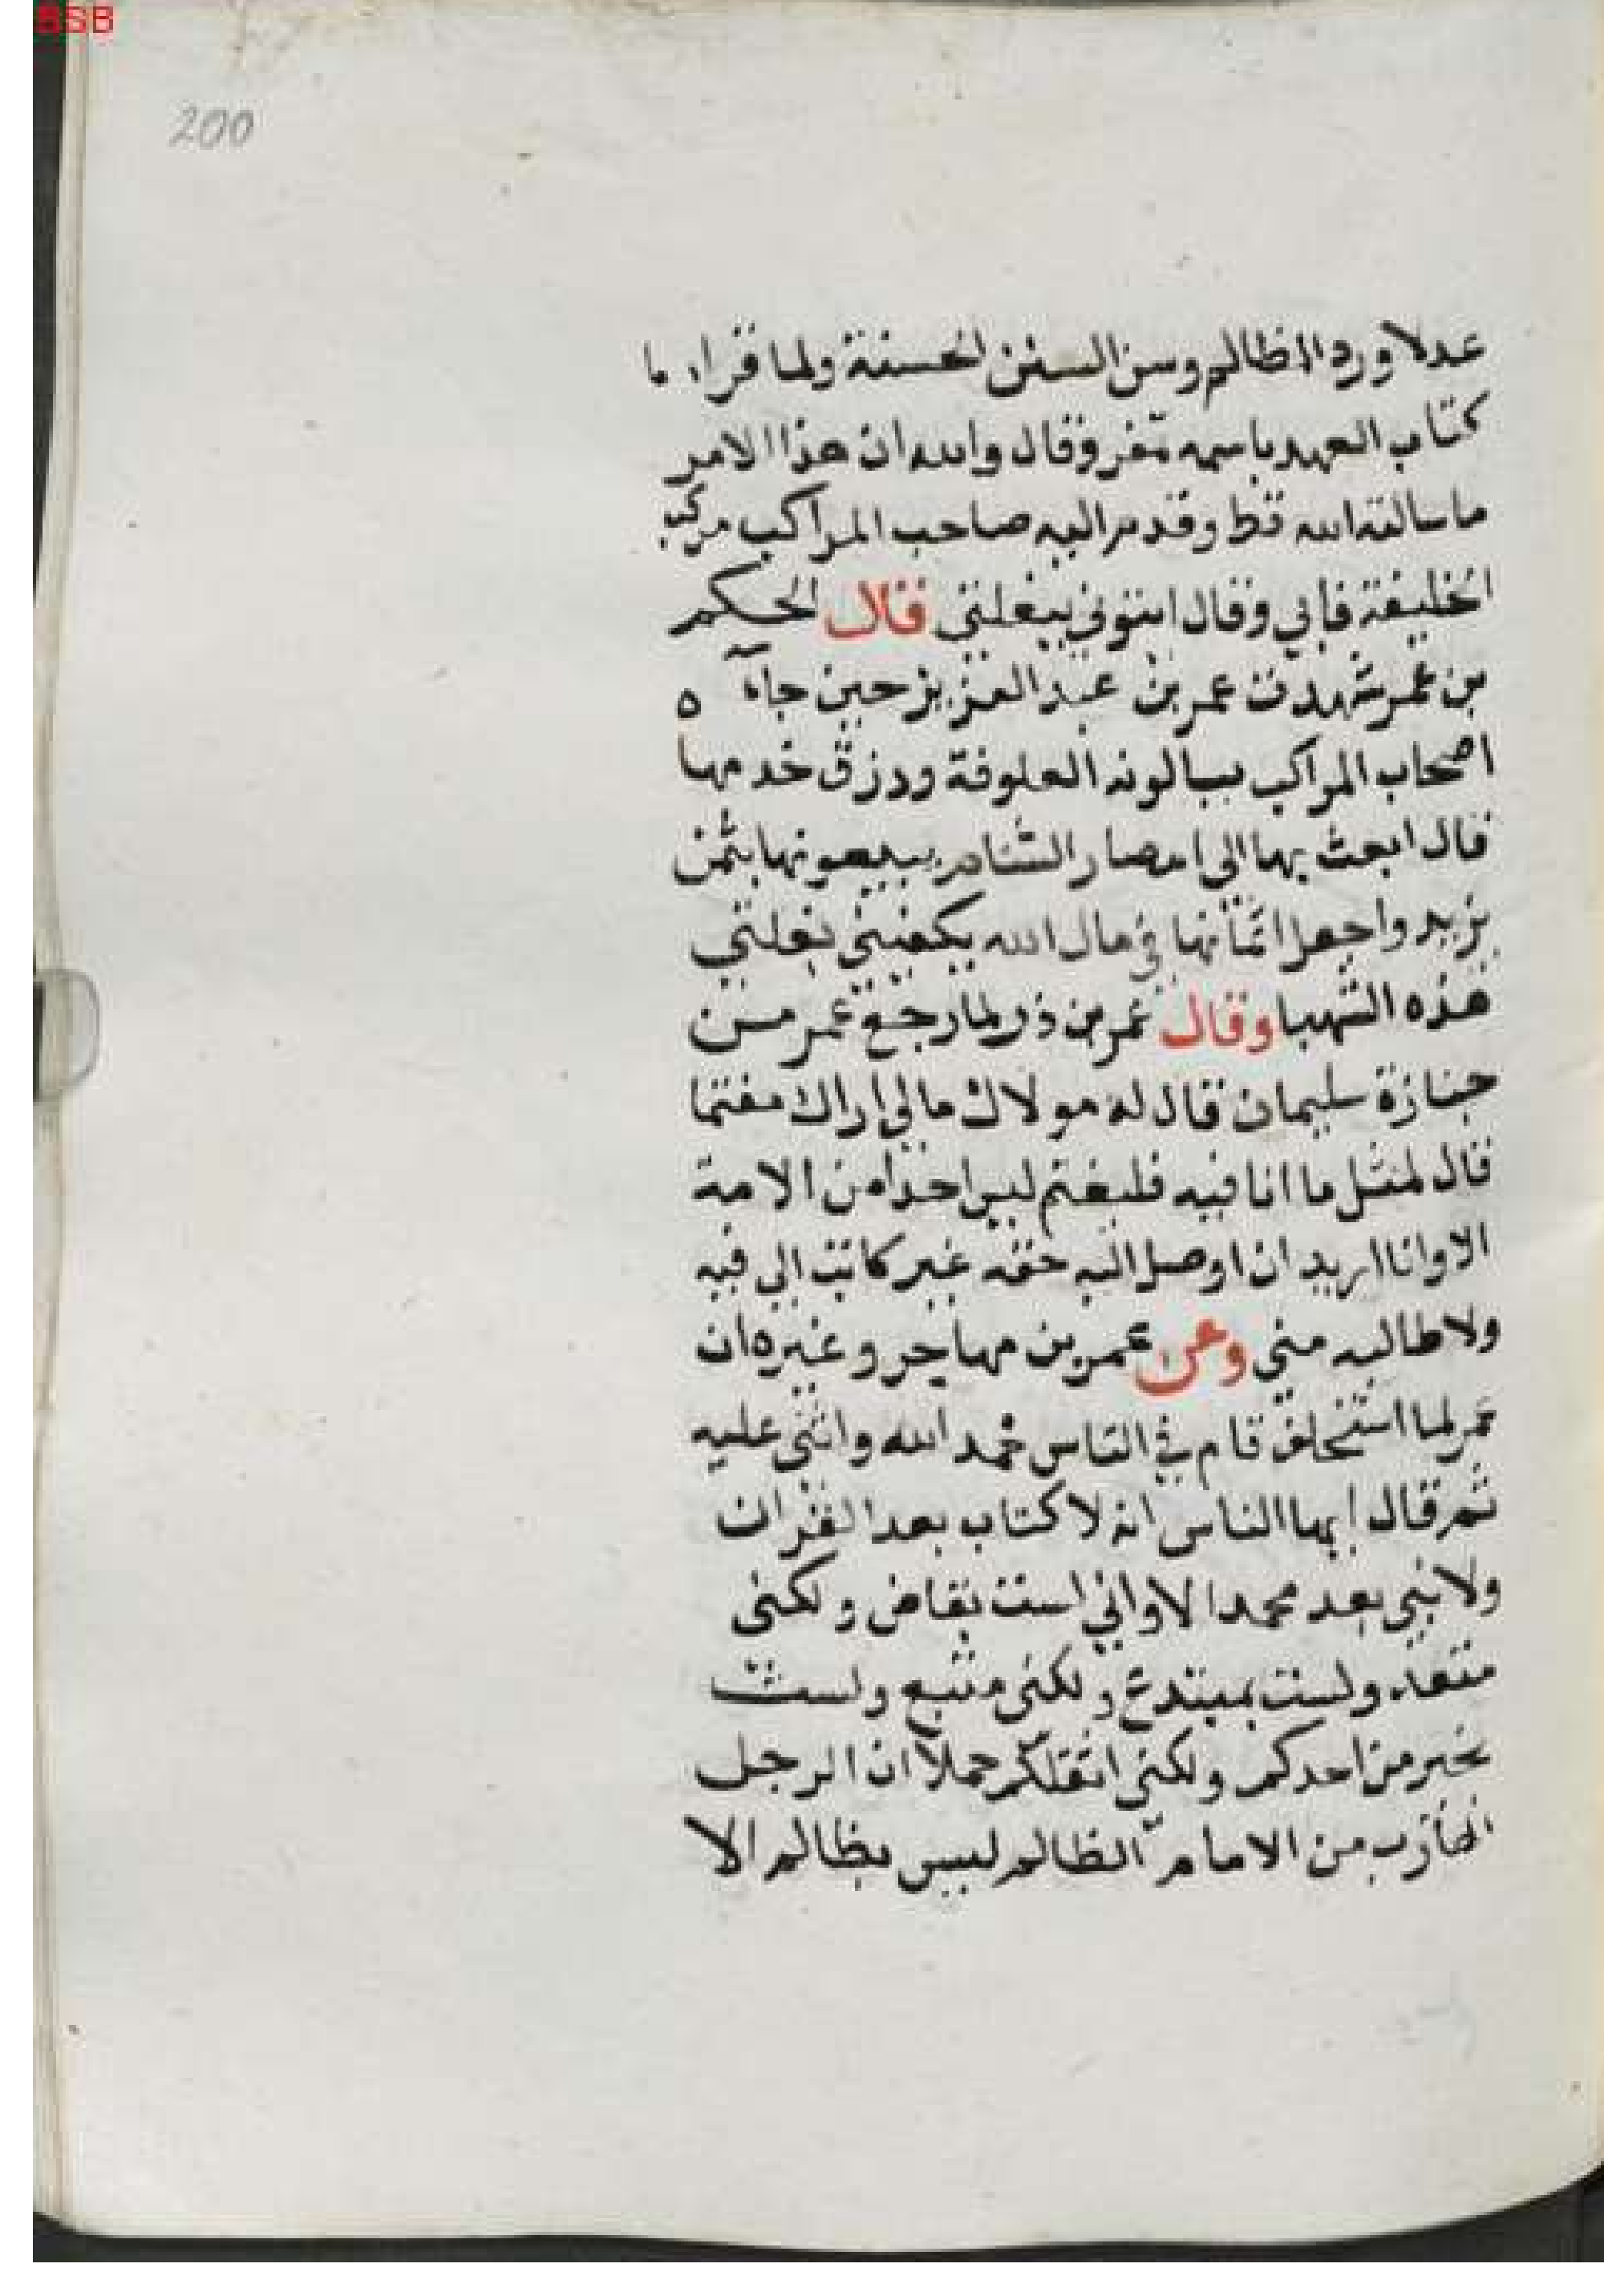 BSB
200
عدلا ورد المظالم وسن السنن الحسنة ولما قراء ما
كتاب العهد باسمه تغر وقال والله ان هذا الامر
ما سالته الله قط وقدم اليه صاحب المراكب مركب
الخليفة فابي وقال ايتوني ببغلتي قال الحكم
بن عمر شهدت عمر بن عبد العزيز حين جآءه
اصحاب المراكب يسالونه العلوفة ورزق خدمها
قال ابعث بها الي امصار الشام يبيعونها بثمن
يزيد واجعل اثمانها في مال الله يكفيني بغلتي
هذه الشهبا وقال عمر بن ذر لما رجع عمر من
جنازة سليمان قال له مولاك مالي اراك مغتما
قال لمثل ما انا فيه فليغتم ليس احدا من الامة
الا وانا اريد ان اوصل اليه حقه غير كاتب الي فيه
ولا طالبه مني وعن عمر بن مهاجر وغيره ان
عمر لما استخلف قام في الناس فحمد الله واثني عليه
ثم قال ايها الناس انه لا كتاب بعد القران
ولا نبي بعد محمد الا واني لست بقاض ولكني
منفذ ولست بمبتدع ولكني متبع ولست
بخير من احدكم ولكني اثقلكم حملا ان الرجل
الهارب من الامام الظالم ليس بظالم الا